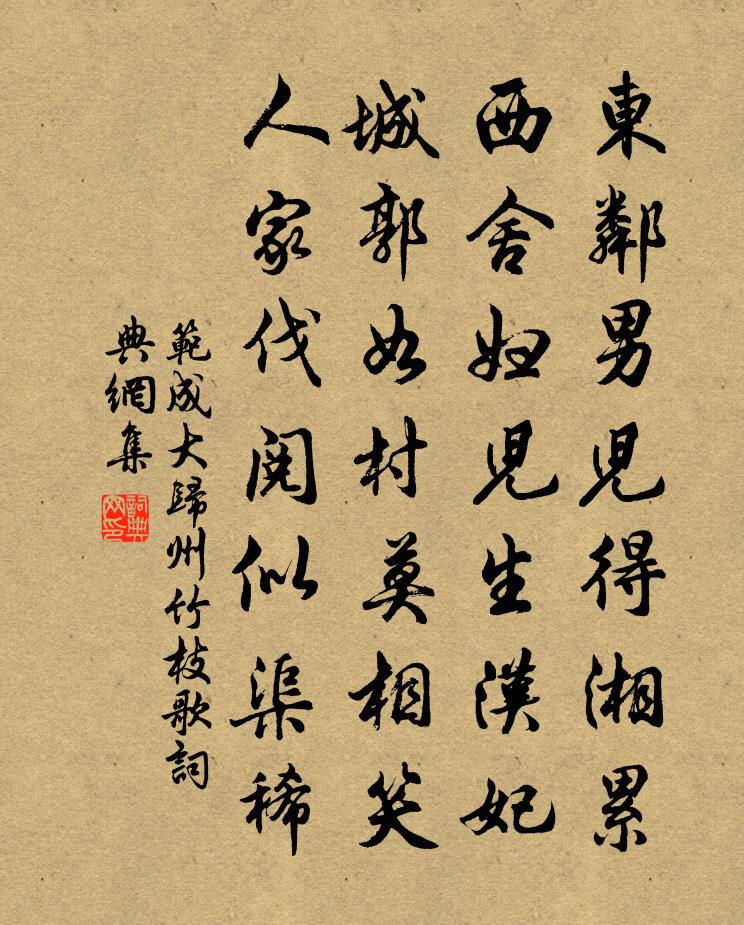 東鄰男児得湘累
西舍妇児生漢妃
城郭如村莫相笑
人家伐閲似渠稀
範成大歸州竹枝歌詞
典網集
詞典
网印